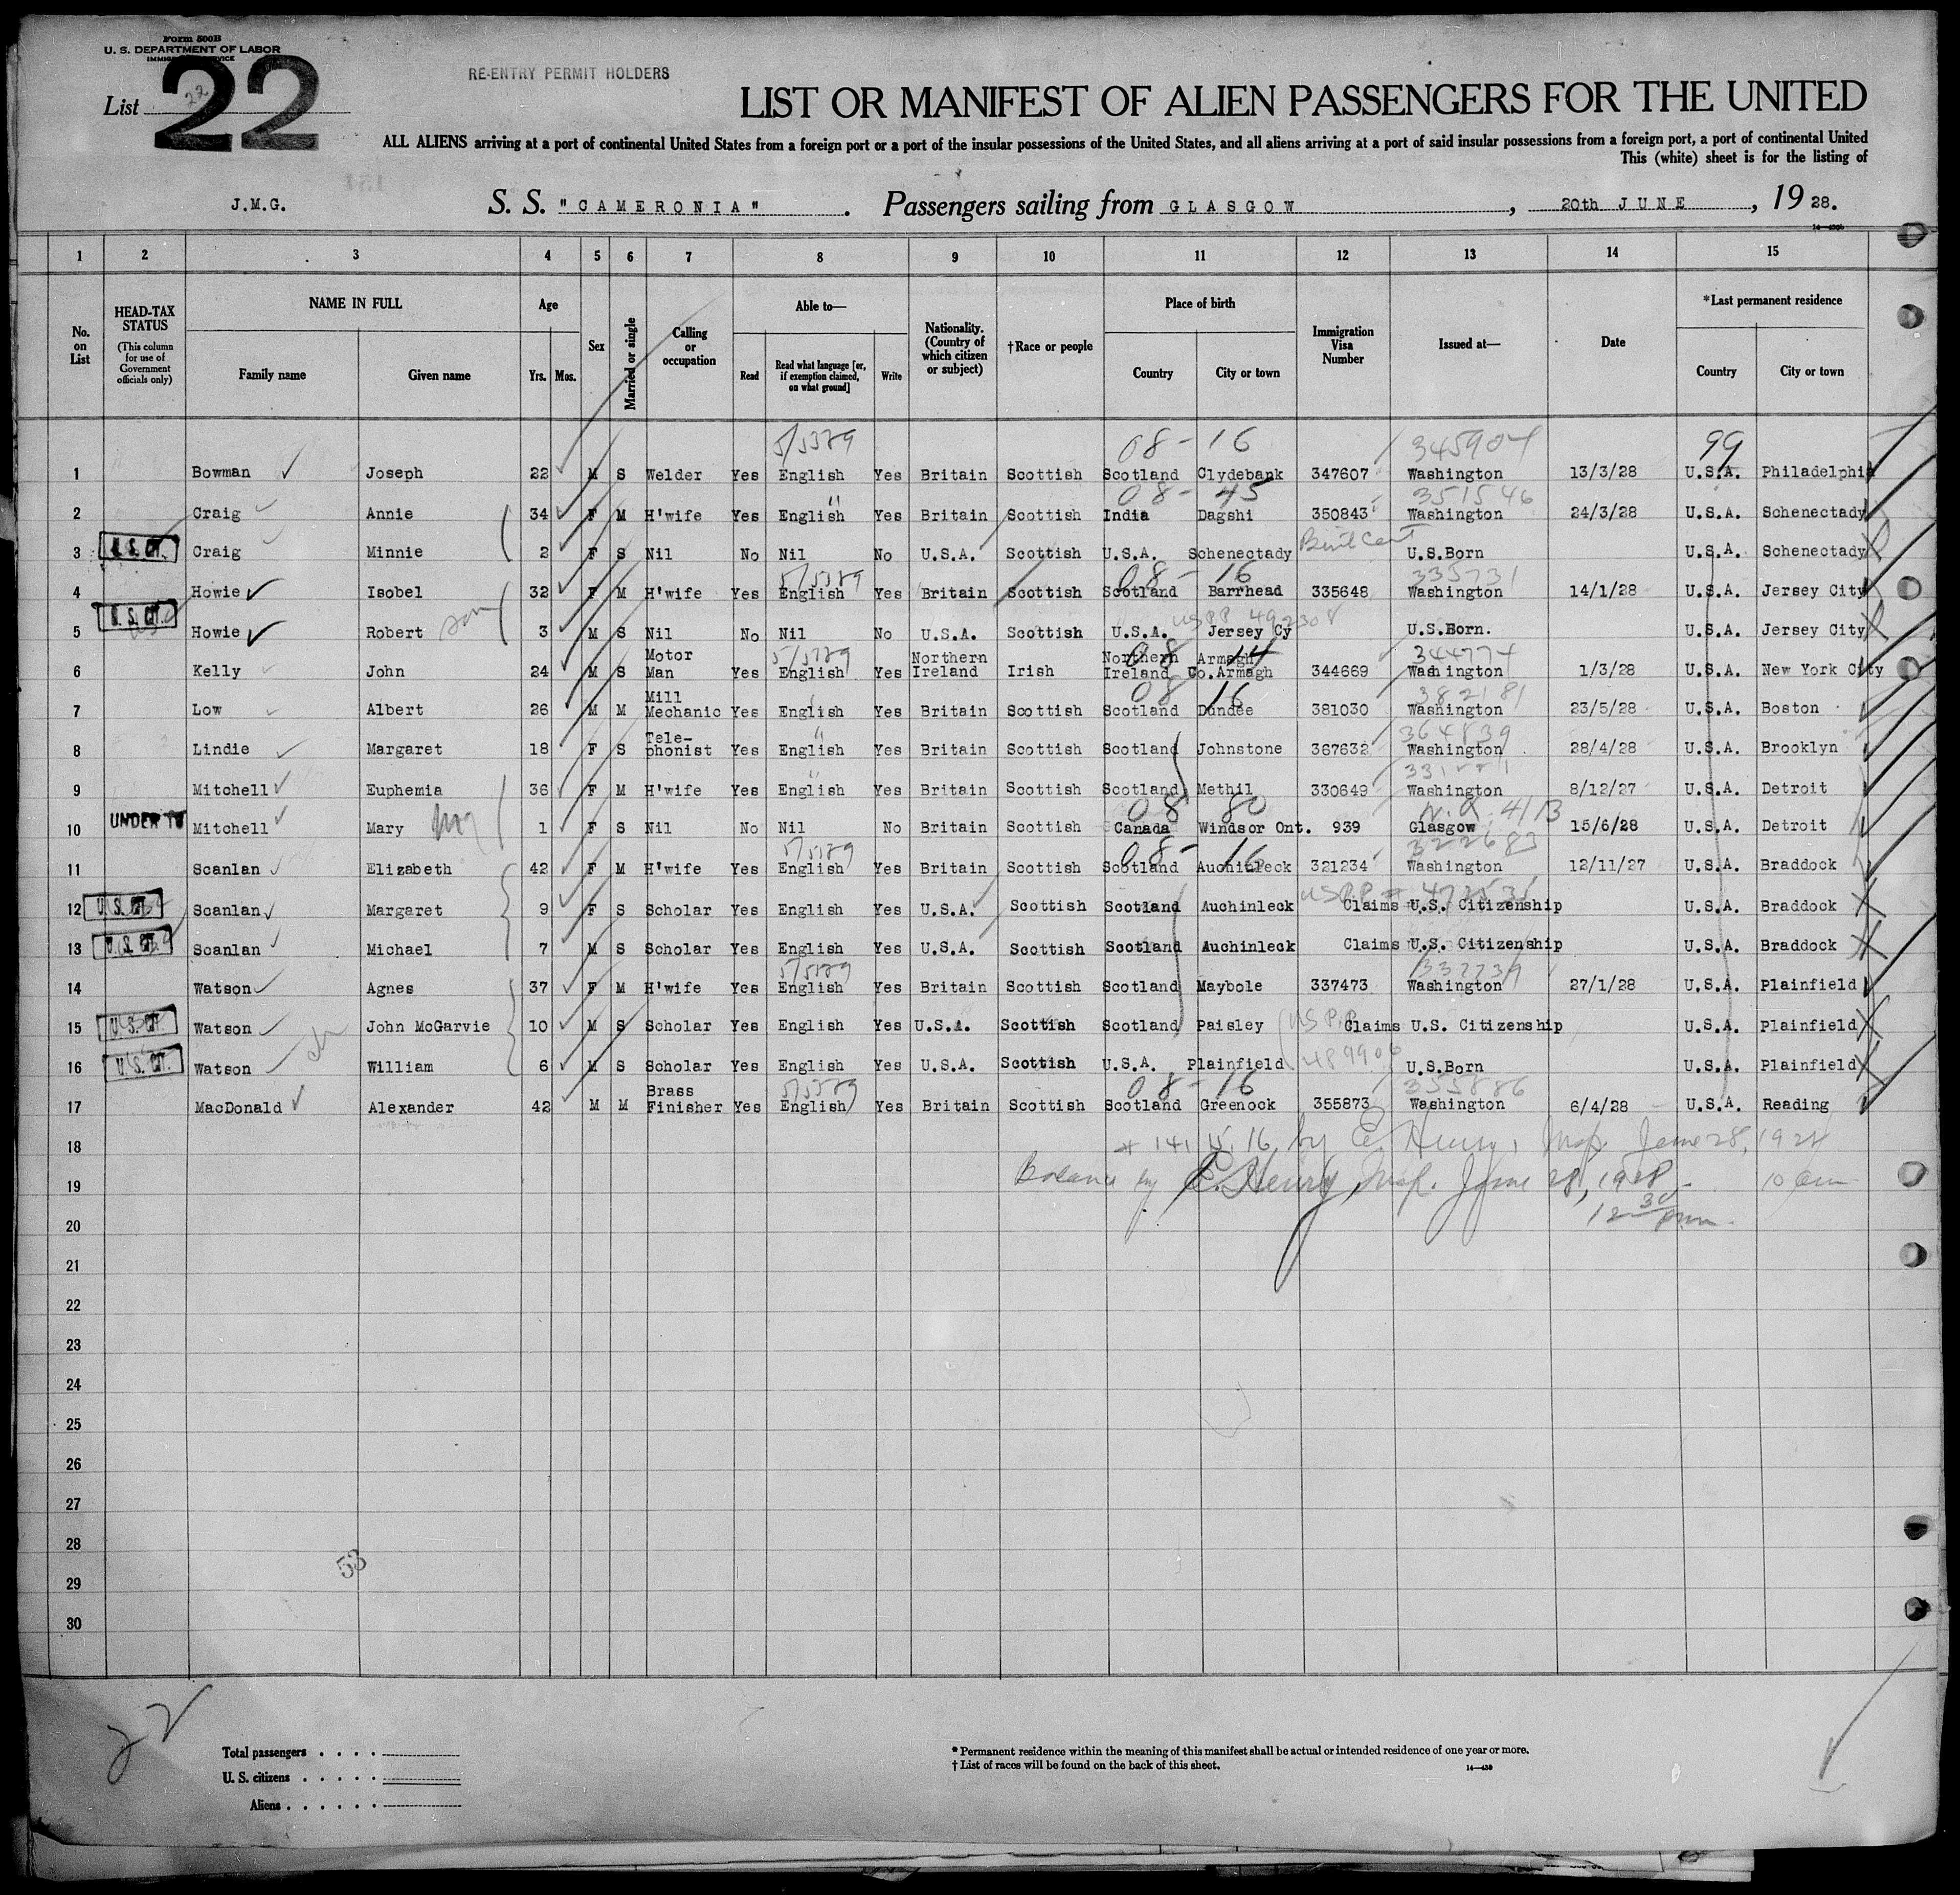 Form 500B
U. S. DEPARTMENT OF LABOR
List 22
22
RE-ENTRY PERMIT HOLDERS
LIST OR MANIFEST OF ALIEN PASSENGERS FOR THE UNITED
ALL ALIENS arriving at a port of continental United States from a foreign port or a port of the insular possessions of the United States, and all aliens arriving at a port of said insular possessions from a foreign port, a port of continental United
This (white) sheet is for the listing of
J.M.G. S. S. "CAMERONIA" . Passengers sailing from GLASGOW , 20th JUNE , 19 28.
1 2 3 4 5 6 7 8 9 10 11 12 13 14 15
No. on List HEAD-TAX STATUS (This column for use of Government officials only) NAME IN FULL Family name Given name Age Yrs. Mos. Sex Married or single Calling or occupation Able to— Read Read what language [or, if exemption claimed, on what ground] Write Nationality. (Country of which citizen or subject) †Race or people Place of birth Country City or town Immigration Visa Number Issued at— Date *Last permanent residence Country City or town
5/5389 08 - 16 345904 99
1 Bowman Joseph 22 M S Welder Yes English Yes Britain Scottish Scotland Clydebank 347607 Washington 13/3/28 U.S.A. Philadelphia
08 - 45 351546
2 Craig Annie 34 F M H'wife Yes English Yes Britain Scottish India Dagshi 350843 Washington 24/3/28 U.S.A. Schenectady
3 U.S. CIT. Craig Minnie 2 F S Nil No Nil No U.S.A. Scottish U.S.A. Schenectady U.S.Born U.S.A. Schenectady
08 - 16 335731
4 Howie Isobel 32 F M H'wife Yes English Yes Britain Scottish Scotland Barrhead 335648 Washington 14/1/28 U.S.A. Jersey City
USPP 492308
5 U.S. CIT. Howie Robert son 3 M S Nil No Nil No U.S.A. Scottish U.S.A. Jersey Cy U.S.Born. U.S.A. Jersey City
344774
6 Kelly John 24 M S Motor Man Yes English Yes Northern Ireland Irish Northern Ireland Armagh Co.Armagh 344669 Washington 1/3/28 U.S.A. New York City
08 16 382181
7 Low Albert 26 M M Mill Mechanic Yes English Yes Britain Scottish Scotland Dundee 381030 Washington 23/5/28 U.S.A. Boston
364839
8 Lindie Margaret 18 F S Tele- phonist Yes English Yes Britain Scottish Scotland Johnstone 367632 Washington 28/4/28 U.S.A. Brooklyn
9 Mitchell Euphemia 36 F M H'wife Yes English Yes Britain Scottish Scotland Methil 330649 Washington 8/12/27 U.S.A. Detroit
08 80
10 UNDER 16 Mitchell Mary 1 F S Nil No Nil No Britain Scottish Canada Windsor Ont. 939 Glasgow 15/6/28 U.S.A. Detroit
08 - 16 322683
11 Scanlan Elizabeth 42 F M H'wife Yes English Yes Britain Scottish Scotland Auchinleck 321234 Washington 12/11/27 U.S.A. Braddock
12 U.S. CIT. Scanlan Margaret 9 F S Scholar Yes English Yes U.S.A. Scottish Scotland Auchinleck Claims U.S. Citizenship U.S.A. Braddock
13 U.S. CIT. Scanlan Michael 7 M S Scholar Yes English Yes U.S.A. Scottish Scotland Auchinleck Claims U.S. Citizenship U.S.A. Braddock
337739
14 Watson Agnes 37 F M H'wife Yes English Yes Britain Scottish Scotland Maybole 337473 Washington 27/1/28 U.S.A. Plainfield
15 U.S. CIT. Watson John McGarvie 10 M S Scholar Yes English Yes U.S.A. Scottish Scotland Paisley Claims U.S. Citizenship U.S.A. Plainfield
16 U.S. CIT. Watson William 6 M S Scholar Yes English Yes U.S.A. Scottish U.S.A. Plainfield 489906 U.S.Born U.S.A. Plainfield
08 - 16 355886
17 MacDonald Alexander 42 M M Brass Finisher Yes English Yes Britain Scottish Scotland Greenock 355873 Washington 6/4/28 U.S.A. Reading
18 # 14, 15, 16 by E. Henry, Insp. June 28, 1928
19 Balance by E. Henry, Insp. June 28, 1928 10 am
20 12 30 pm.
21
22
23
24
25
26
27
28
53
29
30
22
Total passengers
U. S. citizens
Aliens
* Permanent residence within the meaning of this manifest shall be actual or intended residence of one year or more.
† List of races will be found on the back of this sheet.
14—430